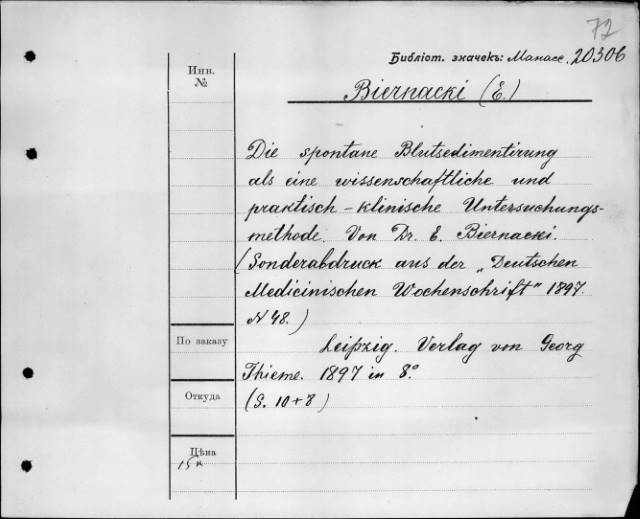 72
Библіот. значекъ: Манасс. 20306
Инв.
№
Biernacki (E.)
Die spontane Blutsedimentirung
als eine wissenschaftliche und
praktisch-klinische Untersuchungs-
methode. Von Dr. E. Biernacki.
(Sonderabdruck aus der „Deutschen
Medicinischen Wochenschrift" 1897.
N 48.)
По заказу
Leipzig. Verlag von Georg
Thieme. 1897 in 8°.
Откуда
(S. 10+8)
Цѣна
15 к